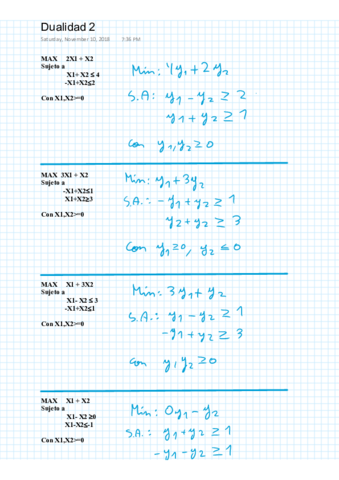 Dualidad 2
Saturday, November 10, 2018 3:36 PM
MAX 2X1 + X2
Sujeto a
X1+ X2 ≤ 4
-X1+X2≤2
Con X1,X2>=0
Min: 4y1+2y2
S.A: y1 - y2 ≥ 2
y1 + y2 ≥ 1
Con y1,y2 ≥0
MAX 3X1 + X2
Sujeto a
-X1+X2≤1
X1+X2≥3
Con X1,X2>=0
Min: y1+3y2
S.A.: - y1 + y2 ≥ 1
y2+y2 ≥ 3
Con y1≥0, y2 ≤0
MAX X1 + 3X2
Sujeto a
X1- X2 ≤ 3
-X1+X2≤1
Con X1,X2>=0
Min: 3y1+ y2
S.A.: y1 - y2 ≥ 1
-y1 + y2 ≥ 3
Con y,y2 ≥0
MAX X1 + X2
Sujeto a
X1- X2 ≥0
X1-X2≤-1
Con X1,X2>=0
Min: 0y1 - y2
S.A: y1+y2 ≥1
-y1 -y2 ≥1